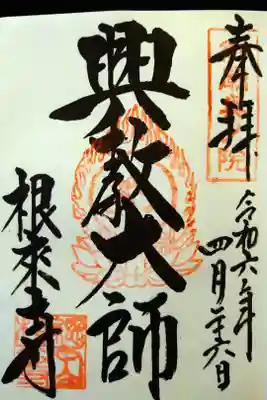 奉拝
令和六年
四月二十六日
興教大師
根来寺